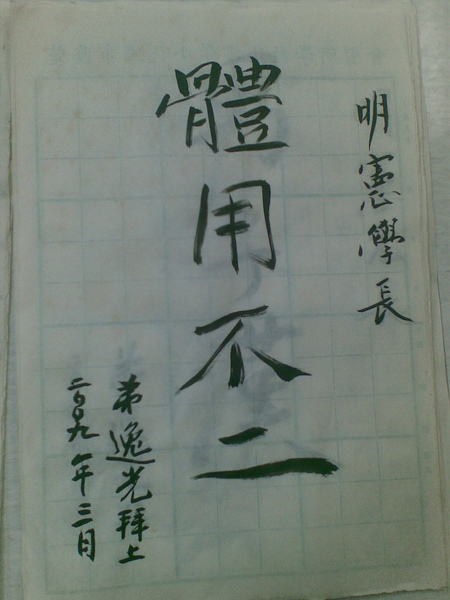 明憲學長
體用不二
弟逸光拜上
二００九年三月